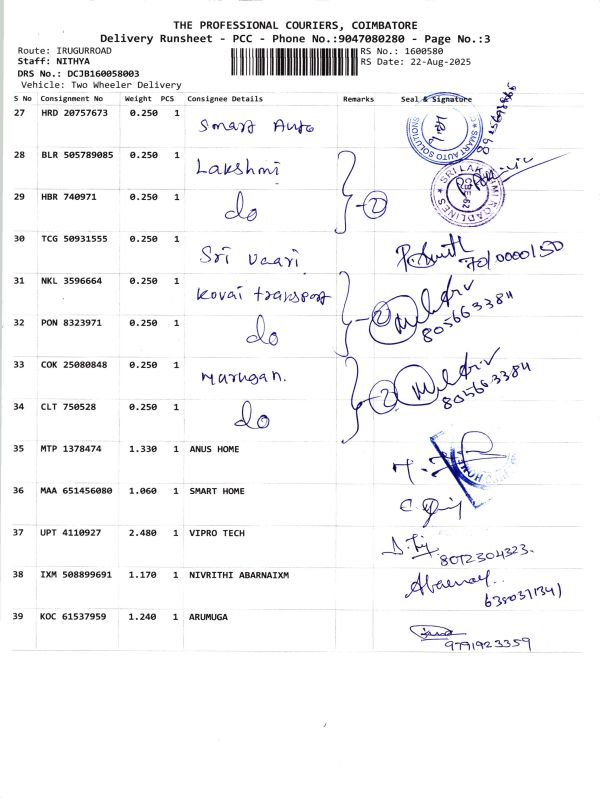 THE PROFESSIONAL COURIERS, COIMBATORE
Delivery Runsheet - PCC - Phone No.:9047080280 - Page No.:3
Route: IRUGURROAD RS No.: 1600580
Staff: NITHYA RS Date: 22-Aug-2025
DRS No.: DCJB160058003
Vehicle: Two Wheeler Delivery
S No Consignment No Weight PCS Consignee Details Remarks Seal & Signature
27 HRD 20757673 0.250 1 Smart Auto SMART AUTO SOLUTIONS
28 BLR 505789085 0.250 1 Lakshmi
29 HBR 740971 0.250 1 do 2 SRI LAKSHMI ROADLINES
30 TCG 50931555 0.250 1 Sri vaari 7010000150
31 NKL 3596664 0.250 1 Kovai transport
32 PON 8323971 0.250 1 do 2 8056633811
33 COK 25080848 0.250 1 Murugan.
34 CLT 750528 0.250 1 do 2 8056633811
35 MTP 1378474 1.330 1 ANUS HOME
36 MAA 651456080 1.060 1 SMART HOME
37 UPT 4110927 2.480 1 VIPRO TECH 8072304323.
38 IXM 508899691 1.170 1 NIVRITHI ABARNAIXM
6380371341
39 KOC 61537959 1.240 1 ARUMUGA
9791923359